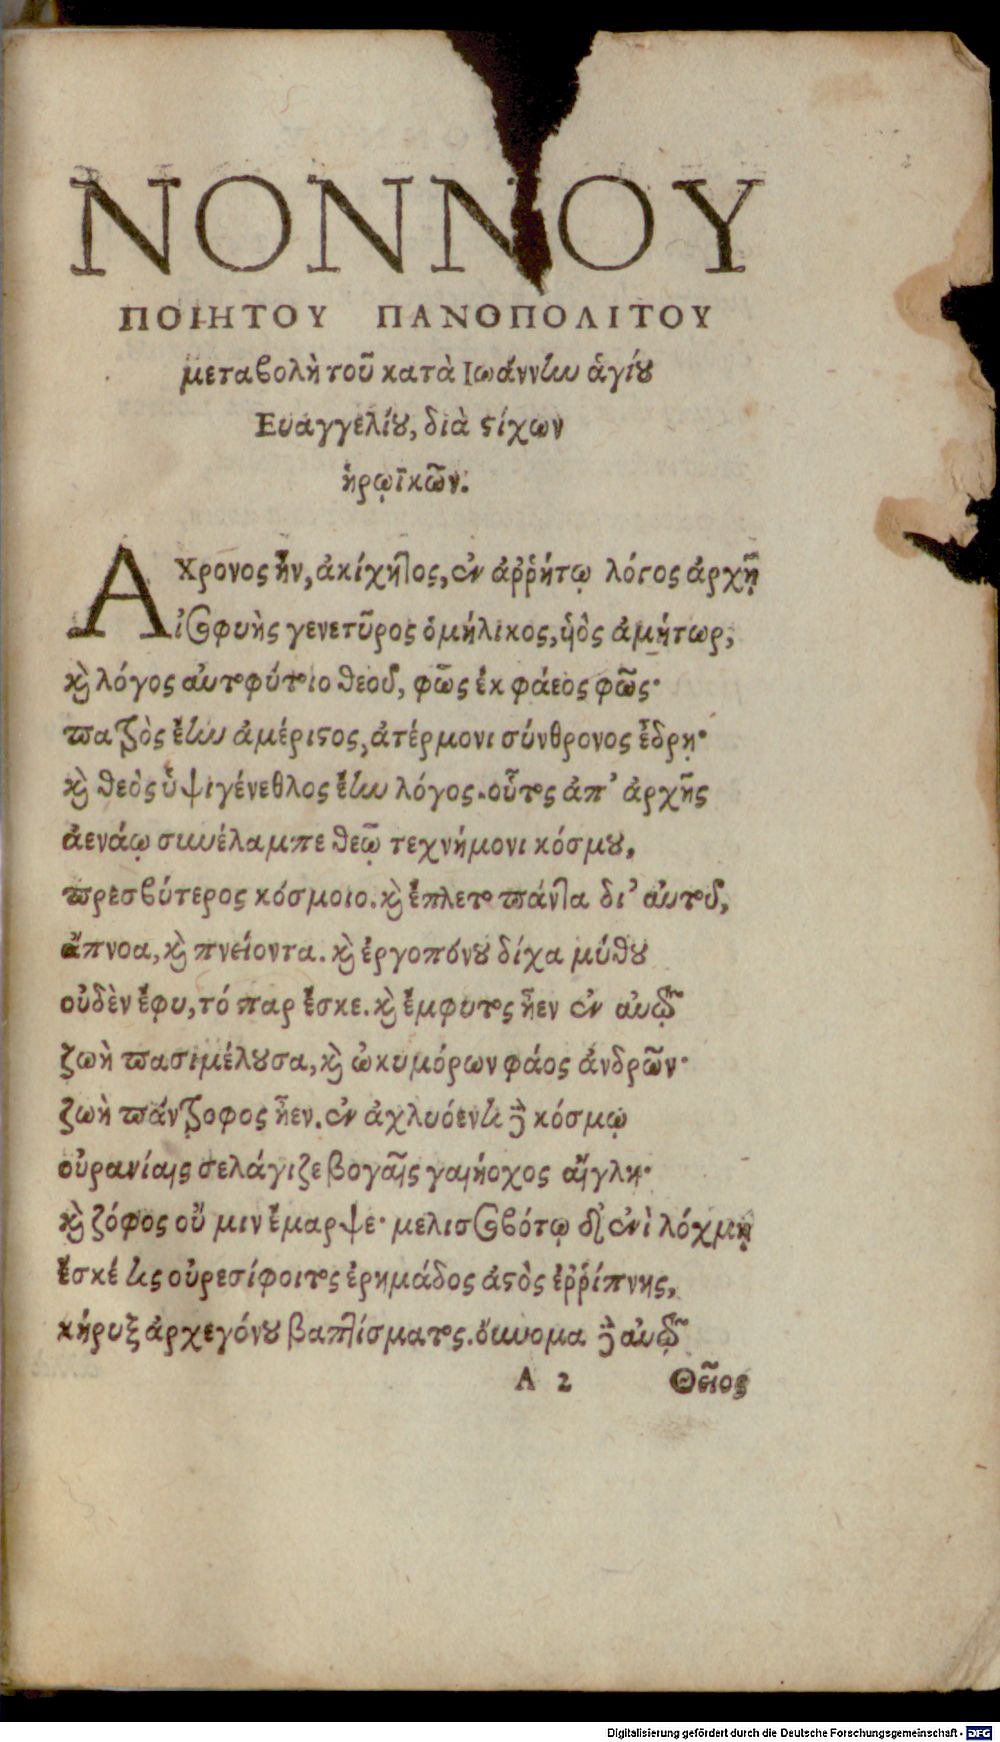 ΝΟΝΝΟΥ
ΠΟΙΗΤΟΥ ΠΑΝΟΠΟΛΙΤΟΥ
μεταβολὴ τοῦ κατὰ Ιωάννην ἁγίου
Ευαγγελίου, διὰ στίχων
ἡρωϊκῶν.
Αχρονος ἦν, ἀκίχητος, ἐν ἀῤῥήτῳ λόγος ἀρχῇ
ἰσοφυὴς γενετῆρος ὁμήλικος, ὑὸς ἀμήτωρ,
καὶ λόγος αὐτοφύτοιο θεοῦ, φῶς ἐκ φάεος φῶς·
πατρὸς ἔην ἀμέριστος, ἀτέρμονι σύνθρονος ἕδρῃ·
καὶ θεὸς ὑψιγένεθλος ἔην λόγος. οὗτος ἀπ' ἀρχῆς
ἀενάῳ συνέλαμπε θεῷ τεχνήμονι κόσμου,
πρεσβύτερος κόσμοιο. καὶ ἔπλετο πάντα δι' αὐτοῦ,
ἄπνοα, καὶ πνείοντα. καὶ ἐργοπόνου δίχα μύθου
οὐδὲν ἔφυ, τό παρ ἔσκε. καὶ ἔμφυτος ἦεν ἐν αὐτῷ
ζωὴ πασιμέλουσα, καὶ ὠκυμόρων φάος ἀνδρῶν·
ζωὴ πάντροφος ἦεν. ἐν ἀχλυόεντι δὲ κόσμῳ
οὐρανίαις σελάγιζε βογαῖς γαιήοχος αἴγλη·
καὶ ζόφος οὔ μιν ἔμαρψε· μελισσοβότῳ δ' ἐνὶ λόχμῃ
ἔσκέ τις οὐρεσίφοιτος ἐρημάδος ἀστὸς ἐῤῥίπνης,
κήρυξ ἀρχεγόνου βαπτίσματος. ὄυνομα δὲ αὐτῷ
A 2 Θεῖος
Digitalisierung gefördert durch die Deutsche Forschungsgemeinschaft - DFG